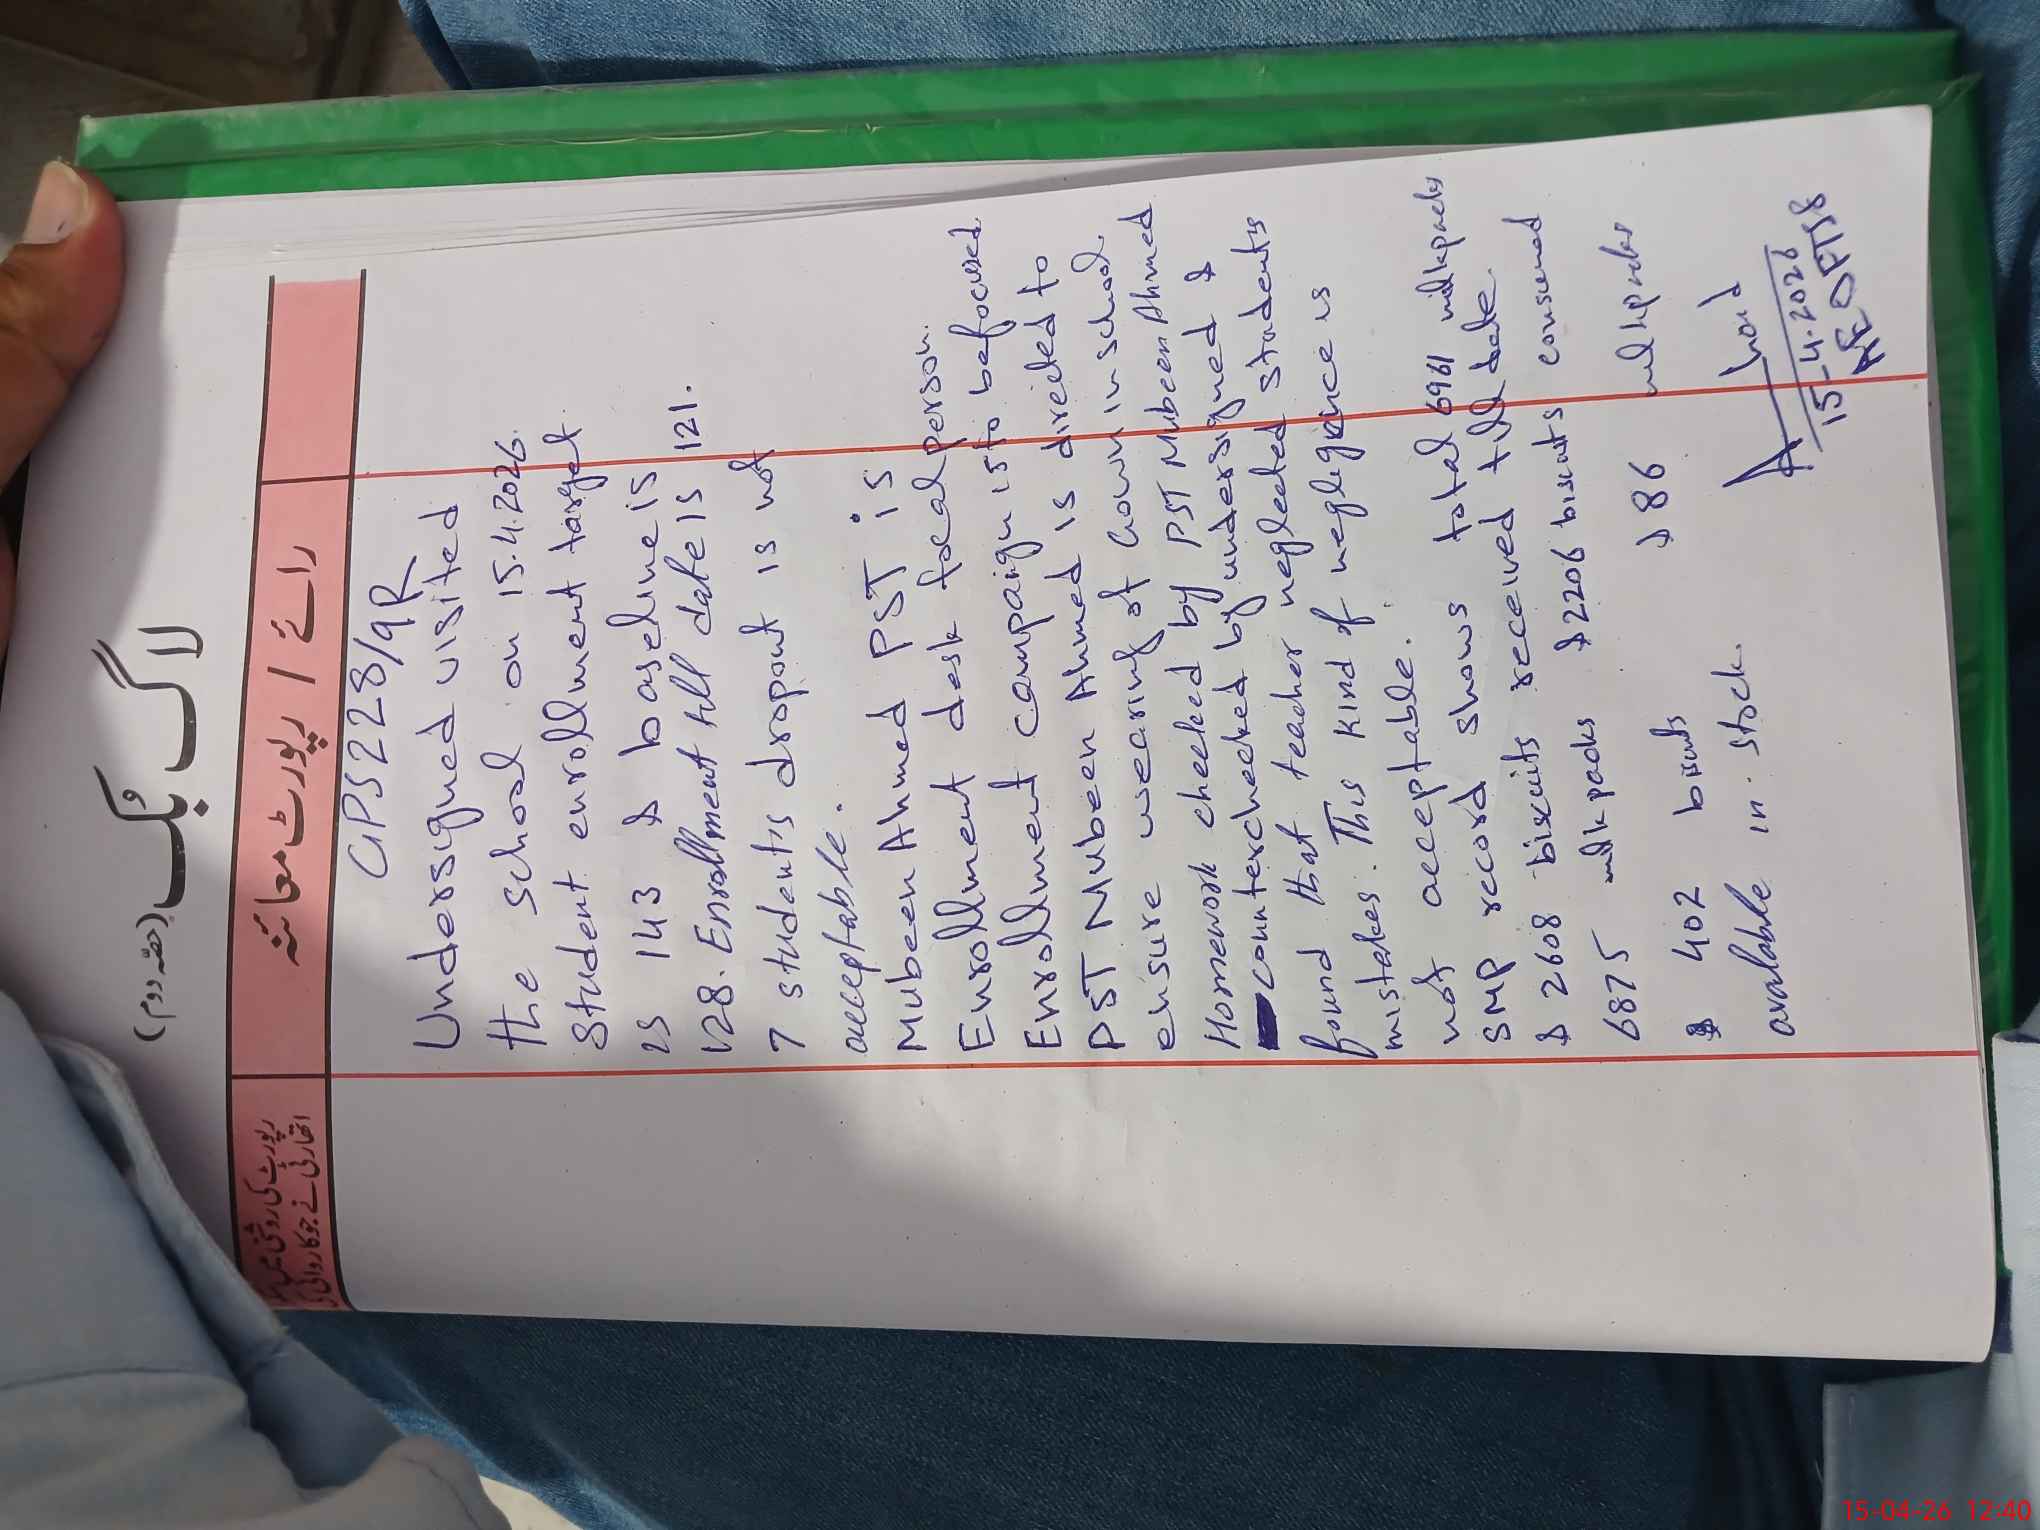 لاگ بُک (حصّہ دوم)
رائے / رپورٹ معائنہ
رپورٹ کی روشنی میں
اتھارٹی نے جو کاروائی کی
GPS 228/9R
Undersigned visited
the school on 15.4.2026.
Student enrollment target
is 143 & baseline is
128. Enrollment till date is 121.
7 students dropout is not
acceptable.
Mubeen Ahmed PST is
Enrollment desk focal person.
Enrollment campaign is to be focused
PST Mubeen Ahmed is directed to
ensure wearing of Gown in school.
Homework checked by PST Mubeen Ahmed
countercheeked by undersigned &
found that teacher neglected students
mistakes. This kind of negligence is
not acceptable.
SMP record shows total 6961 milkpacks
& 2608 biscuits received till date.
6875 milkpacks & 2206 biscuits consumed
& 402 biscuits & 86 milkpacks
available in stock.
15-4.2026
AEO FTJ8
15-04-26 12:40